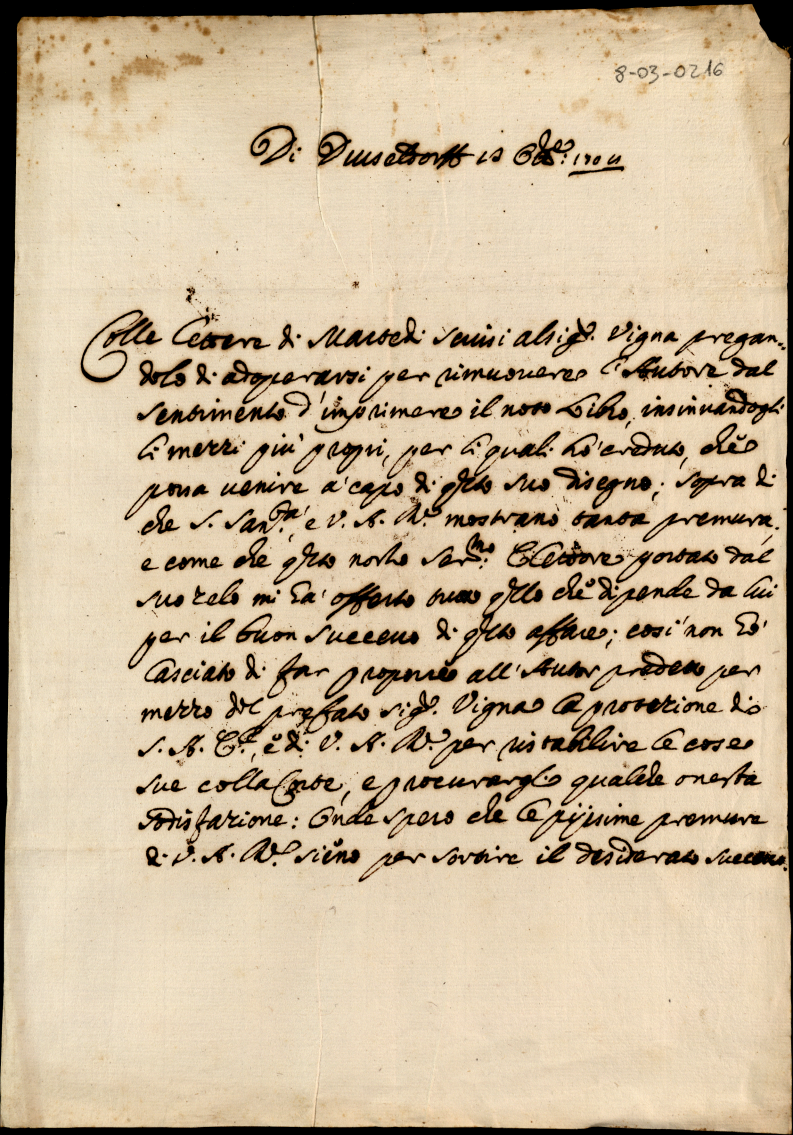 8-03-0216
Di Duseldorff
Colle lettere di Martedi scrissi al sig.r Vigna pregan=
dolo di adoperarsi per rimuovere l'Autore dal
sentimento d'imprimere il noto Libro, insinuandogli
li mezzi più proprii, per li quali hò creduto, che
possa venire a' capo di q.sto suo disegno; sopra di
che S. San.tà, e V. A. R.le mostrano tanta premura,
e come che q.sto nostro Ser.mo Elettore portato dal
suo zelo mi hà offerto tutto q.llo che dipende da lui
per il buon successo di q.sto affare; cosi non hò
lasciato di far proporre all'Autor predetto per
mezzo del prefato sig.r Vigna la protezione di
S. A. E.le, e di V. A. R.le per ristabilire le cose
sue colla Corte, e procurargli qualche onesta
sodisfazione: Onde spero che le piissime premure
di V. A. R.le sieno per sortire il desiderato successo.